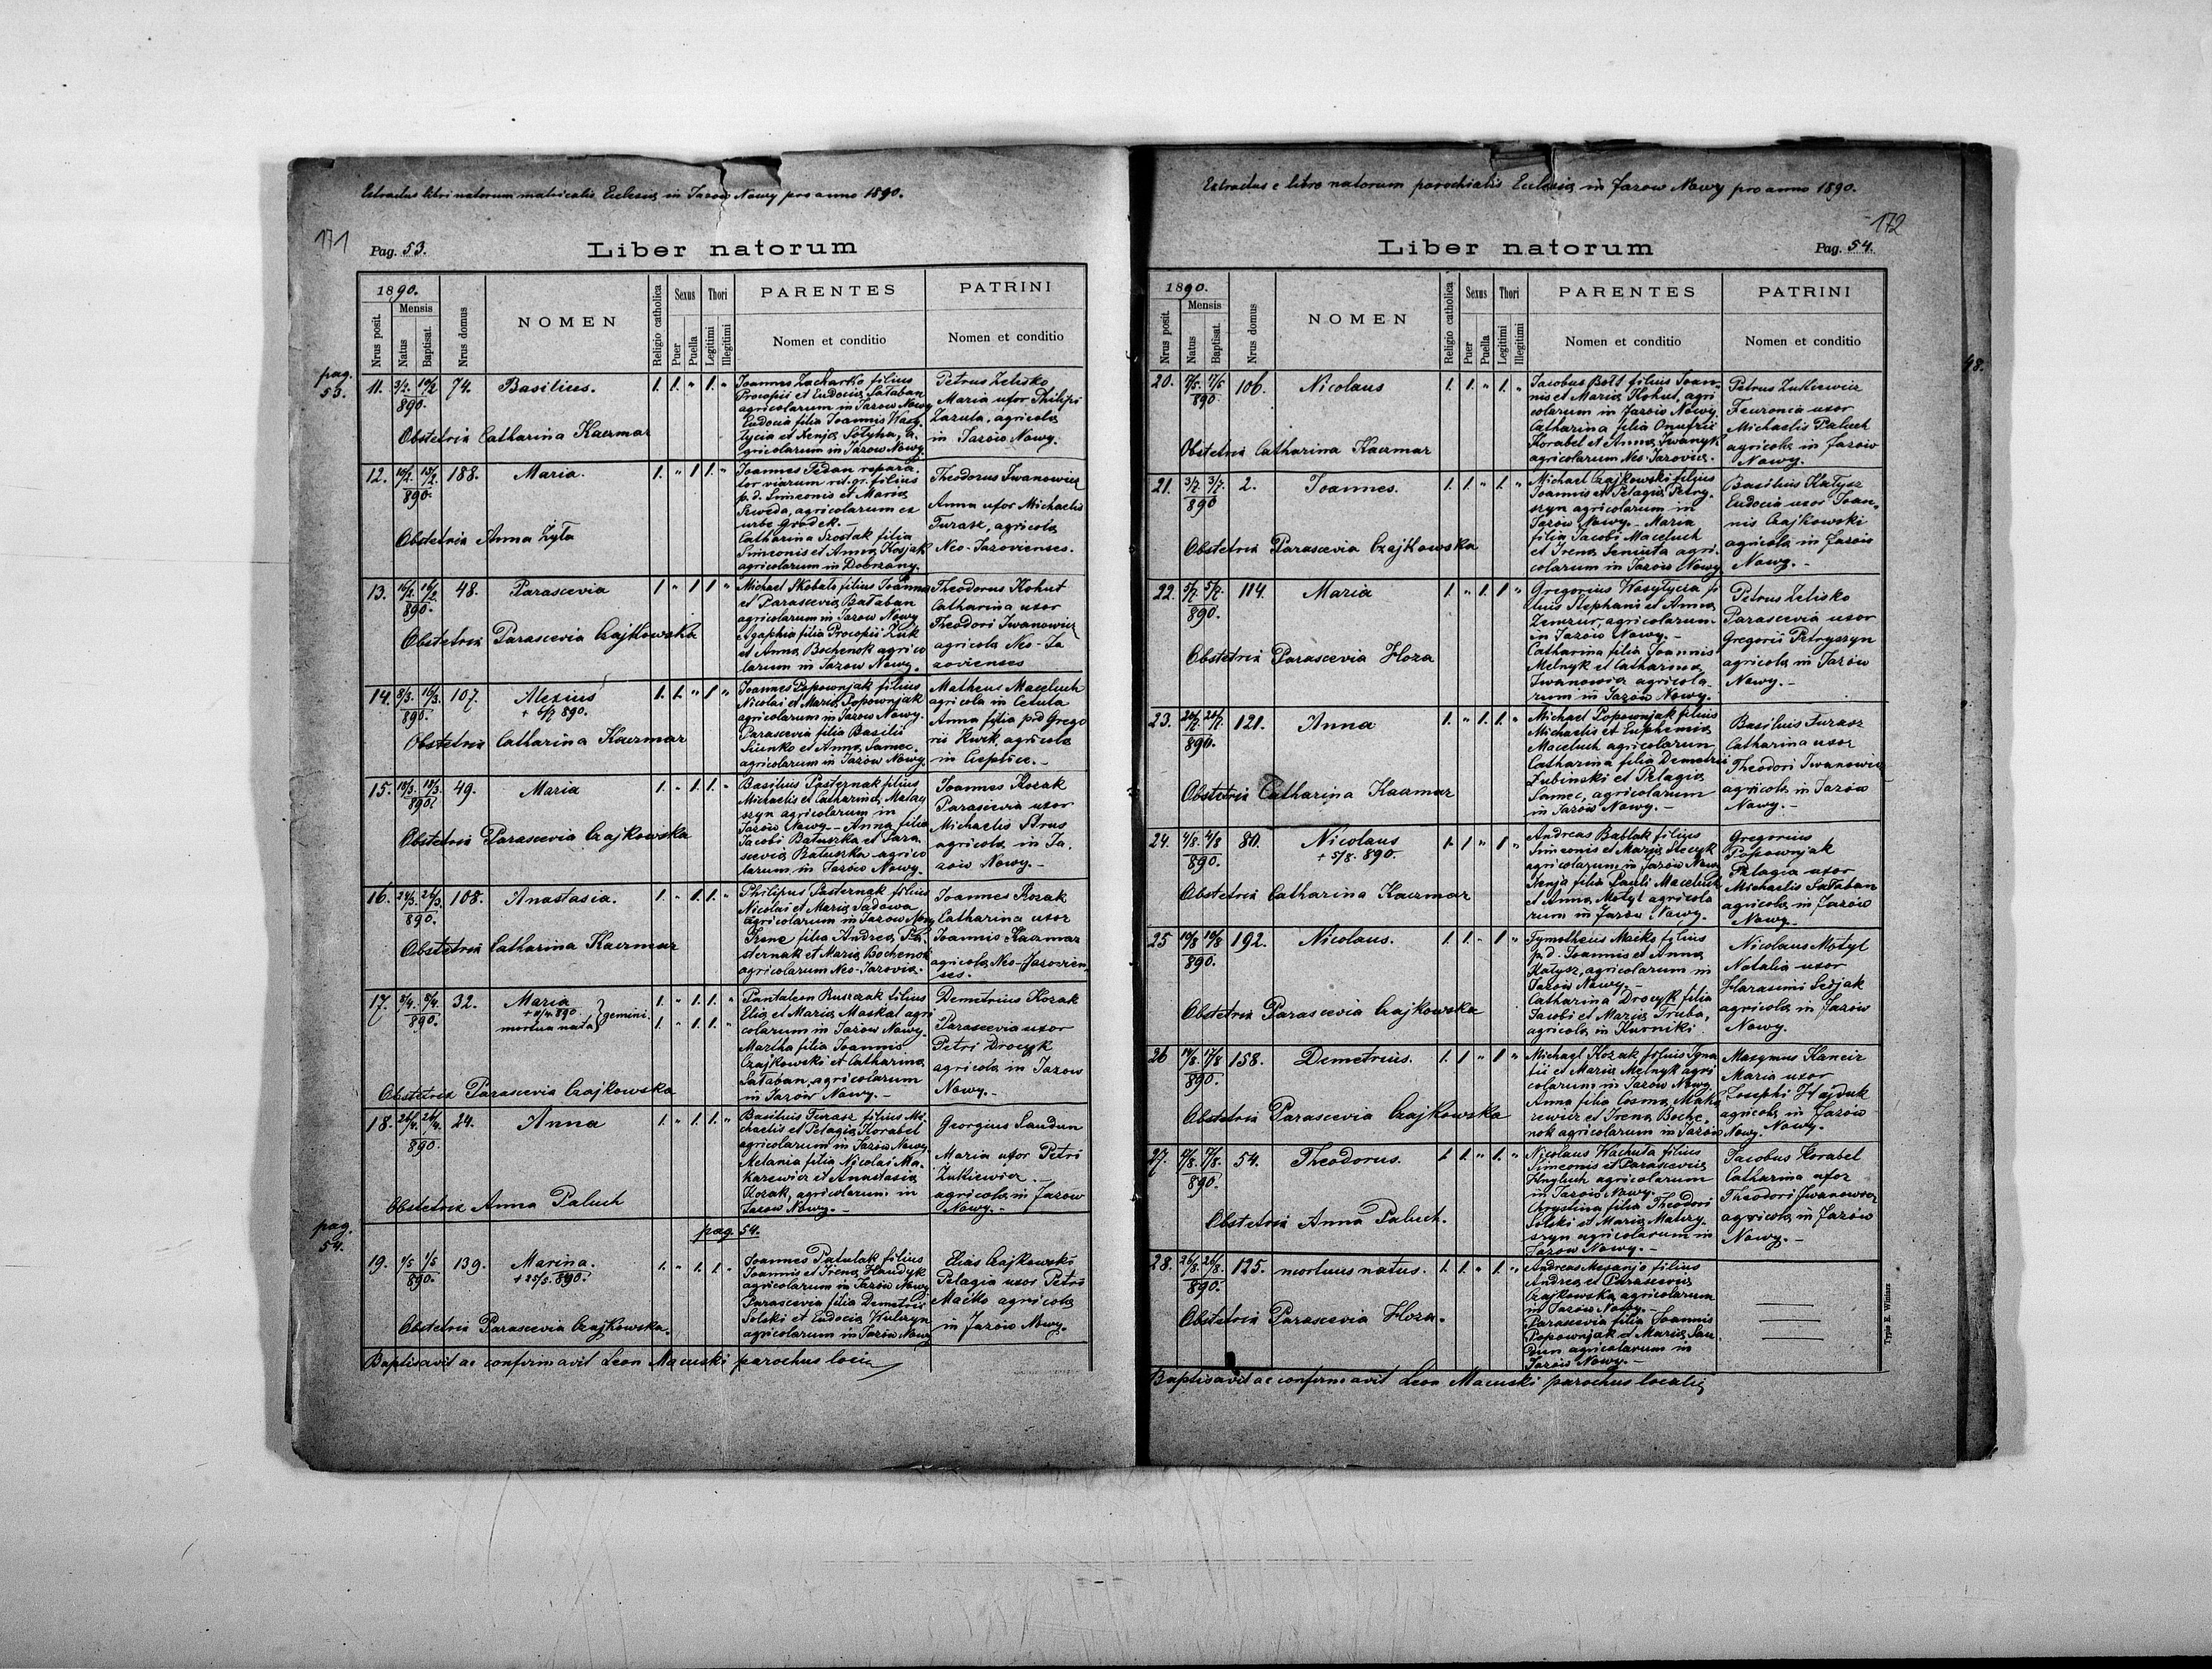 Extractus libri natorum matricalis Ecclesiæ in Jazow Nowy pro anno 1890.
171
Pag. 53.
Liber natorum
1890.
Mensis
Nrus posit.
Natus
Baptisat.
Nrus domus
NOMEN
Religio catholica
Sexus
Puer
Puella
Thori
Legitimi
Illegitimi
PARENTES
Nomen et conditio
PATRINI
Nomen et conditio
pag. 53.
11. 3/2. 10/2 890. 74. Basilius. 1. 1. " 1. "
Joannes Zacharko filius
Procopii et Eudociæ Sałaban
agricolarum in Jazow Nowy
Eudocia filia Joannis Wasy-
łycia et Xenjæ Sołyha, a-
gricolarum in Jazow Nowy.
Petrus Zelisko
Maria uxor Philipi
Zazula, agricolæ
in Jazów Nowy.
Obstetrix Catharina Kaczmar
12. 10/2. 13/2. 890. 188. Maria. 1. " 1. 1. "
Joannes Fedan repara-
tor viarum rit. gr. filius
p. d. Simeonis et Mariæ
Szweda, agricolarum ex
urbe Grodek. -
Catharina Szostak filia
Simeonis et Annæ Kosjak
agricolarum in Dobrzany.
Theodorus Iwanowicz
Anna uxor Michaelis
Turasz, agricolæ
Neo-Jazovienses.
Obstetrix Anna Zyła
13. 16/2. 16/2. 890. 48. Parascevia 1 " 1 1 "
Michael Skobało filius Joannis
et Parasceviæ Bałaban
agricolarum in Jazow Nowy
Agaphia filia Procopii Żuk
et Annæ Bochenok agrico
larum in Jazow Nowy.
Theodorus Kohut
Catharina uxor
Theodori Iwanowicz
agricolæ Neo-Ja
zovienses
Obstetrix Parascevia Czajkowska
14. 8/3. 16/3. 890. 107. Alexius 1. 1. " 1 "
+ 6/7 890.
Joannes Popownjak filius
Nicolai et Mariæ Popownjak
agricolarum in Jazow Nowy.
Parascevia filia Basilii
Sienko et Annæ Samec.
agricolarum in Jazow Nowy.
Matheus Maceluch
agricola in Cetula
Anna filia p. d. Grego
rii Kwik, agricolæ
in Cieplice. -
Obstetrix Catharina Kaczmar
15. 10/3. 10/3. 890. 49. Maria 1. " 1. 1. "
Basilius Pasternak filius
Michaelis et Catharinæ Matwy
szyn agricolarum in
Jazow Nowy - Anna filia
Jacobi Batuszka et Para
sceviæ Batuszka agrico
larum in Jazow Nowy.
Joannes Kozak
Parascevia uxor
Michaelis Strus
agricolæ in Ja.
zow Nowy. -
Obstetrix Parascevia Czajkowska
16. 24/3. 26/3. 890. 108. Anastasia. 1. " 1. 1. "
Philipus Pasternak filius
Nicolai et Mariæ Sadowa
agricolarum in Jazow Nowy
Irene filia Andreæ Pa-
sternak et Mariæ Bochenok
agricolarum Neo-Jazoviæ.
Joannes Kozak
Catharina uxor
Joannis Kaczmar
agricolæ Neo-Jazovien
ses.
Obstetrix Catharina Kaczmar
17. 5/4. 5/4. 890. 32. Maria 1. " 1. 1. "
mortua nata gemini. 1. " 1. 1. "
Pantaleon Ruszczak filius
Eliæ et Mariæ Moskal agri
colarum in Jazow Nowy.
Martha filia Joannis
Czajkowski et Catharinæ
Sałaban, agricolarum
in Jazow Nowy. -
Demetrius Kozak
Parascevia uxor
Petri Drocyk
agricolæ in Jazow
Nowy. -
Obstetrix Parascevia Czajkowska
18. 26/4. 26/4. 890. 24. Anna 1. " 1. 1. "
Basilius Turasz filius Mi-
chaelis et Pelagiæ Korabel
agricolarum in Jazow Nowy
Melania filia Nicolai Ma-
karewicz et Anastasiæ
Kozak, agricolarum in
Jazow Nowy. -
Georgius Saudun
Maria uxor Petri
Żutkiewicz. -
agricolæ in Jazow
Nowy. -
Obstetrix Anna Paluch
pag. 54.
pag. 54.
19. 1/5 1/5 890. 139. Marina. 1. " 1. 1. "
+ 25/5. 890.
Joannes Patulak filius
Joannis et Irenæ Handyk
agricolarum in Jazow Nowy
Parascevia filia Demetrii
Solski et Eudociæ Kulczyn
agricolarum in Jazow Nowy
Elias Czajkowski
Pelagia uxor Petri
Maćko agricolæ
in Jazow Nowy.
Obstetrix Parascevia Czajkowska.
Baptisavit ac confirmavit Leon Macuski parochus loci
Extractus e libro natorum parochialis Ecclesiæ in Jazow Nowy pro anno 1890.
172
Liber natorum
Pag. 54.
1890.
Mensis
Nrus posit.
Natus
Baptisat.
Nrus domus
NOMEN
Religio catholica
Sexus
Puer
Puella
Thori
Legitimi
Illegitimi
PARENTES
Nomen et conditio
PATRINI
Nomen et conditio
20. 17/5. 17/5 890 106. Nicolaus 1. 1. " 1. "
Jacobus Bołt filius Joan-
nis et Mariæ Kohut, agri
colarum in Jazow Nowy.
Catharina filia Onufrii
Korabel et Annæ Iwanyk
agricolarum Neo-Jazoviæ.
Petrus Żutkiewicz
Feuronia uxor
Michaelis Paluch
agricolæ in Jazow
Nowy.
Obstetrix Catharina Kaczmar
21. 3/7. 3/7. 890 2. Joannes. 1. 1. " 1. "
Michael Czajkowski filius
Joannis et Pelagiæ Petry-
szyn agricolarum in
Jazow Nowy. - Maria
filia Jacobi Maceluch
et Irenæ Seniuta agri-
colarum in Jazow Nowy
Basilius Kałysz
Eudocia uxor Joan-
nis Czajkowski
agricolæ in Jazow
Nowy. -
Obstetrix Parascevia Czajkowska
22. 5/7. 5/7. 890. 114. Maria 1. " 1. 1 "
Gregorius Wasyłycia fi
lius Stephani et Annæ
Zemzur, agricolarum
in Jazow Nowy. -
Catharina filia Joannis
Melnyk et Catharinæ
Iwanowicz agricola-
rum in Jazow Nowy.
Petrus Zelisko
Parascevia uxor
Gregorii Petryszyn
agricolæ in Jazow
Nowy. -
Obstetrix Parascevia Hoza
23. 20/7. 20/7. 890. 121. Anna 1. " 1. 1. "
Michael Popownjak filius
Michaelis et Euphemiæ
Maceluch agricolarum
Catharina filia Demetrii
Łubinski et Pelagiæ
Samec, agricolarum
in Jazow Nowy. -
Basilius Turasz
Catharina uxor
Theodori Iwanowicz
agricolæ in Jazow
Nowy. -
Obstetrix Catharina Kaczmar
24. 4/8. 4/8 890. 80. Nicolaus 1. 1 " 1 "
+ 5/8. 890.
Andreas Bablak filius
Simeonis et Mariæ Stecyk
agricolarum in Jazow Nowy
Xenja filia Pauli Maceluch
et Annæ Motyl agricola
rum in Jazow Nowy.
Gregorius
Popownjak
Pelagia uxor
Michaelis Sałaban
agricolæ in Jazow
Nowy.
Obstetrix Catharina Kaczmar
25 10/8 10/8 890. 192. Nicolaus. 1. 1. " 1 "
Tymotheus Maćko filius
p. d. Joannis et Annæ
Kałysz, agricolarum in
Jazow Nowy. -
Catharina Drocyk filia
Jacobi et Mariæ Truba,
agricolæ in Kurniki.
Nicolaus Motyl
Natalia uxor
Harasimi Sedjak
agricolæ in Jazow
Nowy.
Obstetrix Parascevia Czajkowska
26 14/8. 17/8 890. 158. Demetrius. 1. 1 " 1 "
Michael Kozak filius Igna
tii et Mariæ Melnyk agri
colarum in Jazow Nowy
Anna filia Cosmæ Maka
rewicz et Irenæ Boche-
nok agricolarum in Jazow Nowy.
Maxymus Kancir
Maria uxor
Josephi Hajduk
agricolæ in Jazow
Nowy.
Obstetrix Parascevia Czajkowska
27. 17/8. 17/8. 890. 54. Theodorus. 1. 1. " 1. "
Nicolaus Kachuta filius
Simeonis et Parasceviæ
Hnyluch agricolarum
in Jazow Nowy. -
Chrystina filia Theodori
Solski et Mariæ Matwy-
szyn agricolarum in
Jazow Nowy. -
Jacobus Korabel
Catharina uxor
Theodori Iwanowicz
agricolæ in Jazow
Nowy. -
Obstetrix Anna Paluch.
28. 26/8. 26/8. 890. 125. mortuus natus. 1. 1. " 1. "
Andreas Mesanjo filius
Andreæ et Parasceviæ
Czajkowska agricolarum
in Jazow Nowy. -
Parascevia filia Joannis
Popownjak et Mariæ Sau-
dun agricolarum in
Jazow Nowy. -
Obstetrix Parascevia Hoza.
Typis E. Winiarz
Baptisavit ac confirmavit Leon Macuski parochus localis